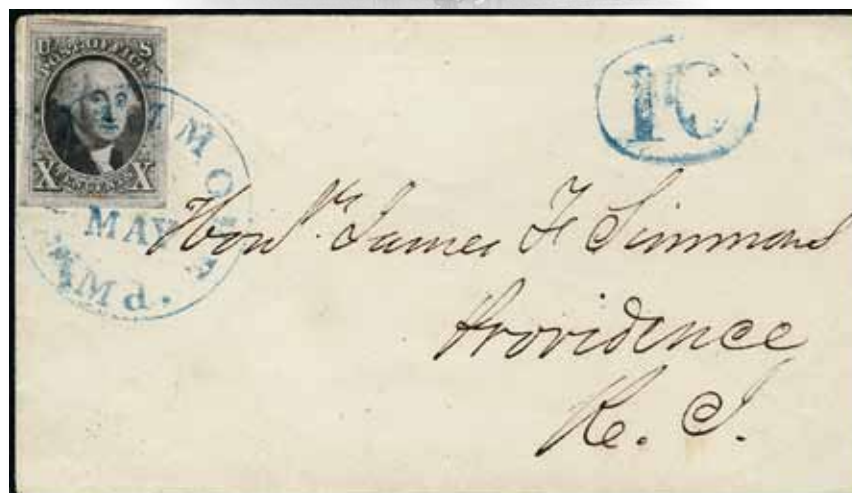 U S
POST OFFICE
X TEN CENTS X
MAY
Md.
10
Honl. James F Simmons
Providence
R. I.